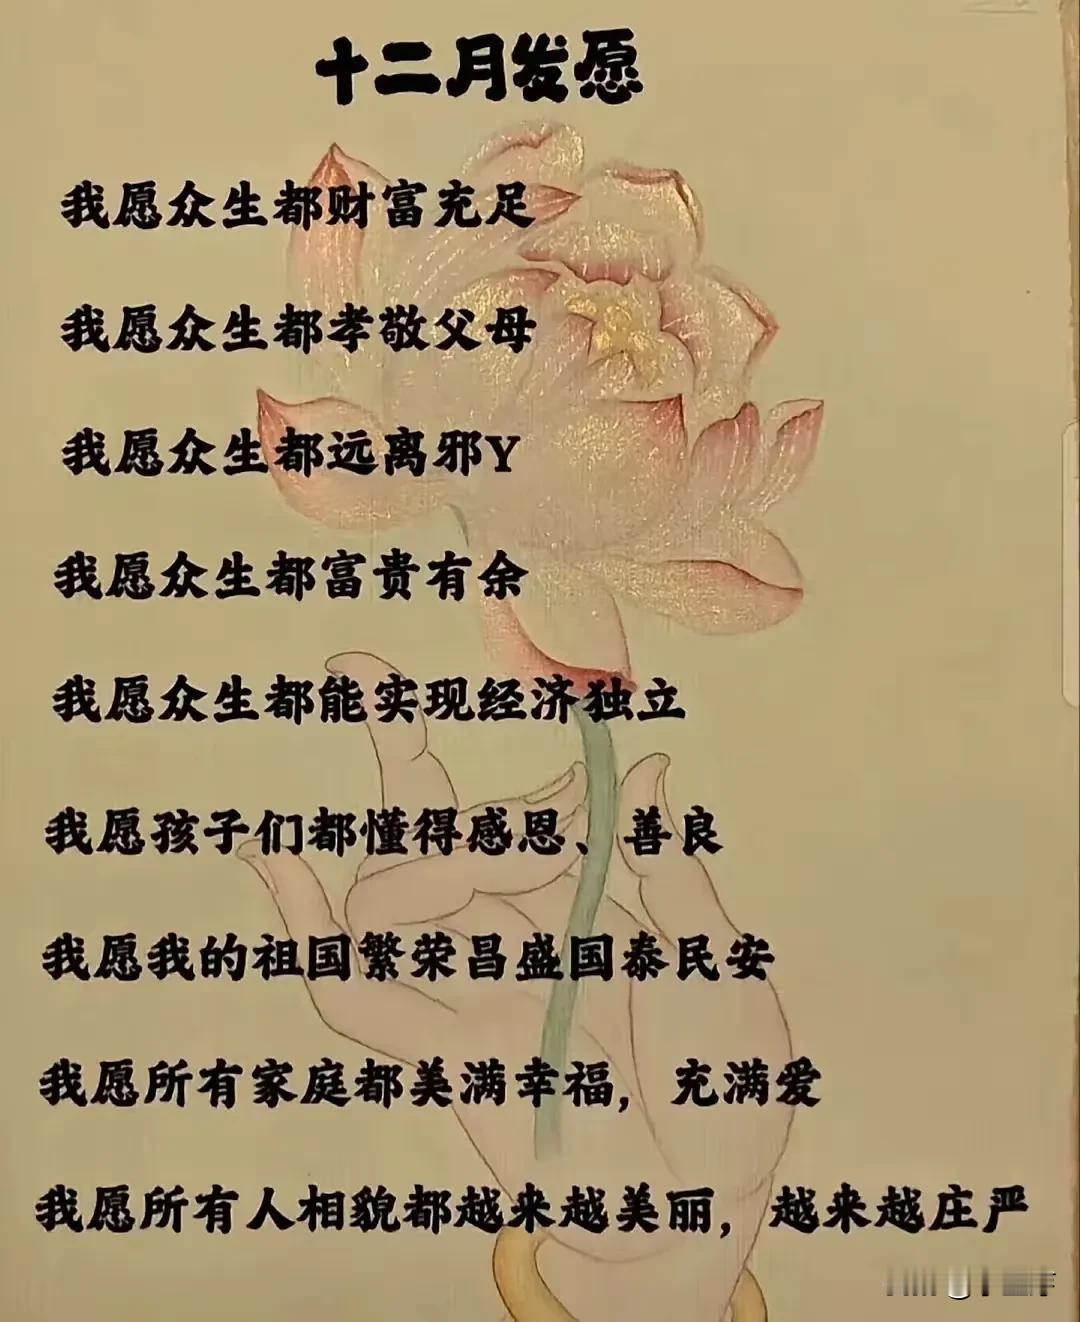 十二月发愿
我愿众生都财富充足
我愿众生都孝敬父母
我愿众生都远离邪Y
我愿众生都富贵有余
我愿众生都能实现经济独立
我愿孩子们都懂得感恩、善良
我愿我的祖国繁荣昌盛国泰民安
我愿所有家庭都美满幸福，充满爱
我愿所有人相貌都越来越美丽，越来越庄严